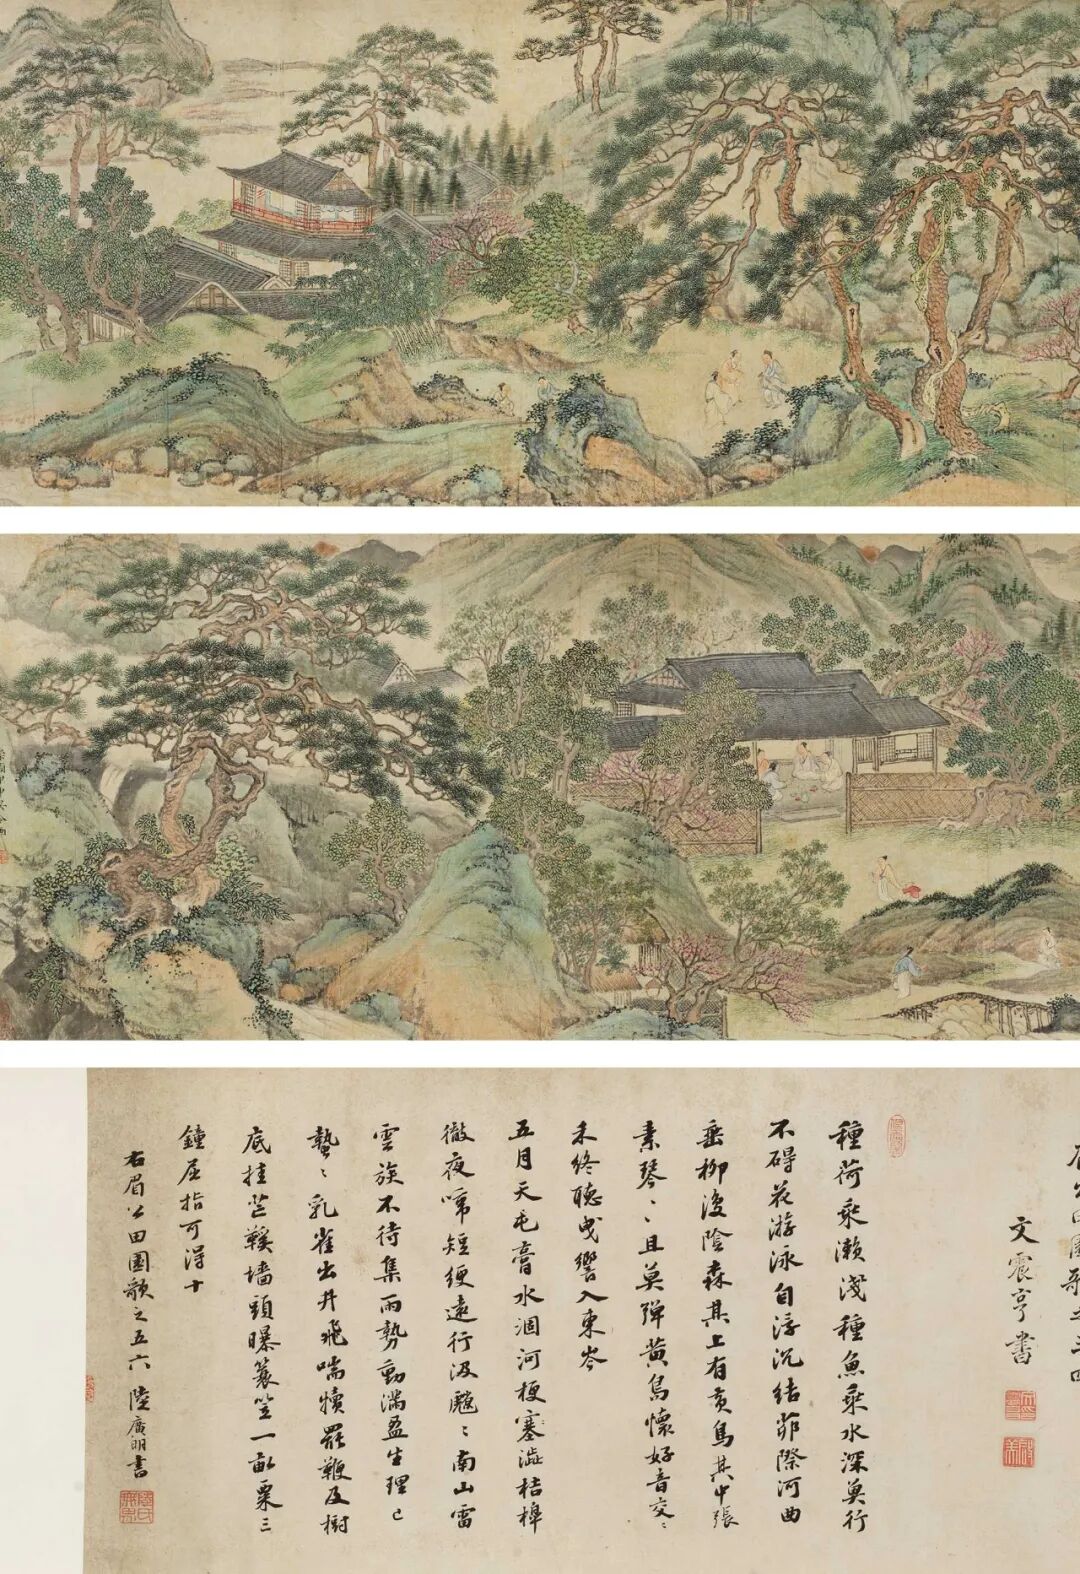 文震亨書
種荷乘瀨淺種魚乘水深魚行
不碍花游泳自浮沉結茆際河曲
垂柳復陰森其上有黃鳥其中張
素琴〻〻且莫彈黃鳥懷好音交〻
未終聽曳響入東岑
五月天屯膏水涸河梗塞澁桔槔
徹夜啼短綆遠行汲〻南山雷
雲族不待集雨勢動滿盈生理已
蟄〻乳雀出井飛喘犢罷鞭及樹
底挂芒鞵墻頭曝蓑笠一畝粟三
鐘屈指可得十
右眉公田園歌之五六 陸廣明書